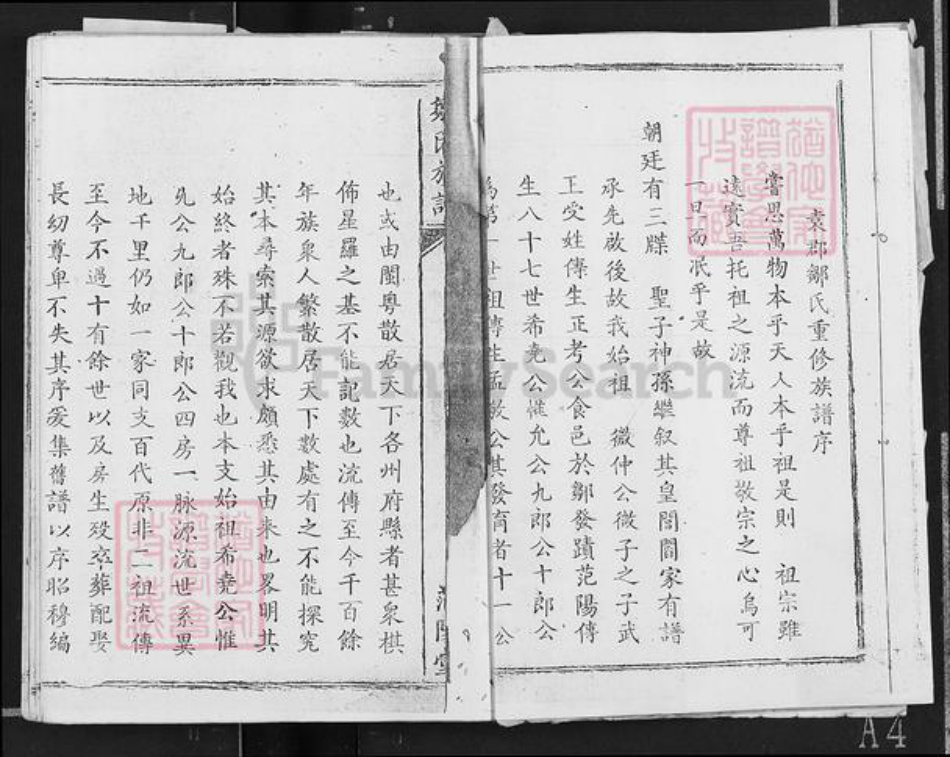 袁郡鄒氏重修族譜序
嘗思萬物本乎天人本乎祖是則 祖宗雖
遠實吾托祖之源流而尊祖敬宗之心烏可
一旦而泯乎是故
朝廷有三牒 聖子神孫繼叙其皇閣閻家有譜
承先啟後故我始祖 微仲公微子之子武
王受姓傳生正考公食邑於鄒發蹟范陽傳
生八十七世希堯公惟允公九郎公十郎公
為第一世祖傳生孟敬公其發育者十一公
鄒氏族譜
范陽堂
也或由閩粵散居天下各州府縣者甚衆棋
佈星羅之基不能記數也流傳至今千百餘
年族衆人繁散居天下數處有之不能探究
其本尋索其源欲求頗悉其由来也畧明其
始終者殊不若觀我也本支始祖希堯公惟
允公九郎公十郎公四房一脈源流世系異
地千里仍如一家同支百代原非二祖流傳
至今不過十有餘世以及房生殁卒葬配娶
長幼尊卑不失其序爰集舊譜以序昭穆編
FamilySearch
A4